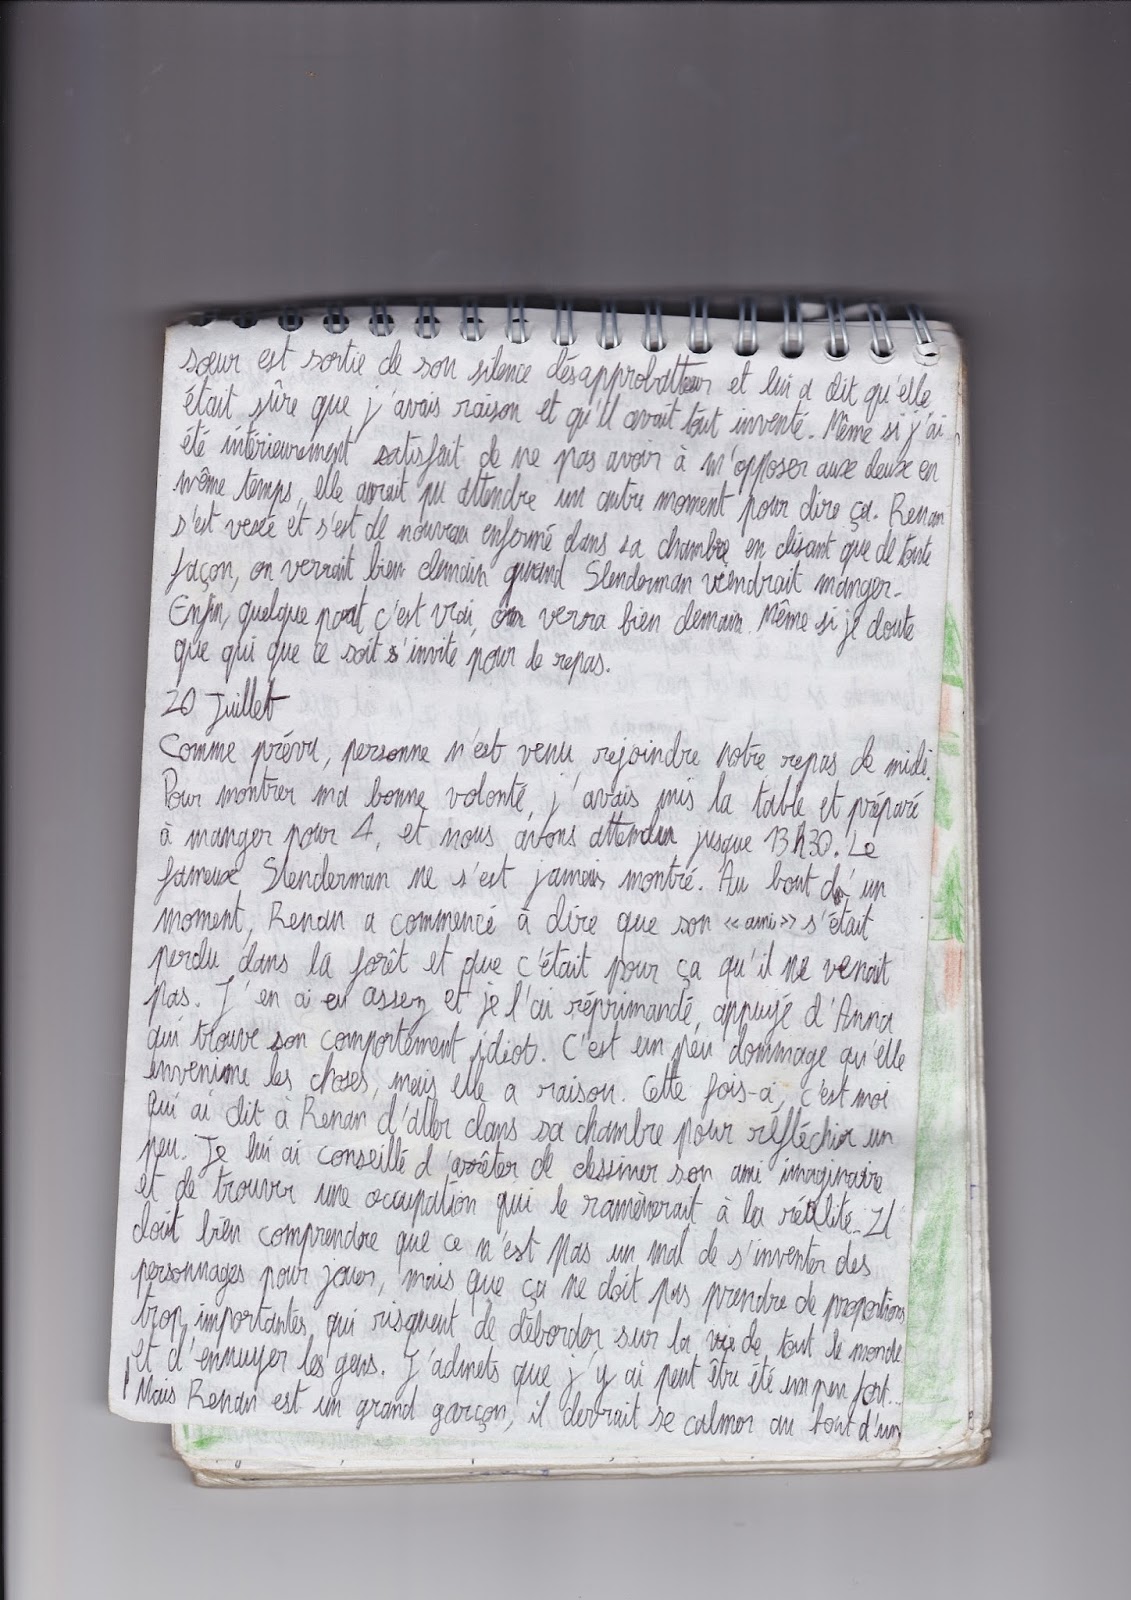 sœur est sortie de son silence désapprobatteur et lui a dit qu'elle
était sûre que j'avais raison et qu'il avait tout inventé. Même si j'ai
été intérieurement satisfait de ne pas avoir à m'opposer aux deux en
même temps, elle aurait pu attendre un autre moment pour dire ça. Renan
s'est vexé et s'est de nouveau enfermé dans sa chambre en disant que de toute
façon, on verrait bien demain quand Slenderman viendrait manger.
Enfin, quelque part c'est vrai, on verra bien demain. Même si je doute
que qui que ce soit s'invite pour le repas.
20 Juillet
Comme prévu, personne n'est venu rejoindre notre repas de midi.
Pour montrer ma bonne volonté, j'avais mis la table et préparé
à manger pour 4, et nous avons attendu jusque 13h30. Le
fameux Slenderman ne s'est jamais montré. Au bout d'un
moment, Renan a commencé à dire que son «ami» s'était
perdu dans la forêt et que c'était pour ça qu'il ne venait
pas. J'en ai eu assez et je l'ai réprimandé, appuyé d'Anna
qui trouve son comportement idiot. C'est un peu dommage qu'elle
envenime les choses, mais elle a raison. Cette fois-ci, c'est moi
qui ai dit à Renan d'aller dans sa chambre pour réfléchir un
peu. Je lui ai conseillé d'arrêter de dessiner son ami imaginaire
et de trouver une occupation qui le ramènerait à la réalité. Il
doit bien comprendre que ce n'est pas un mal de s'inventer des
personnages pour jouer, mais que ça ne doit pas prendre de proportions
trop importantes qui risquent de déborder sur la vie de tout le monde
et d'ennuyer les gens. J'admets que j'y ai peut être été un peu fort...
Mais Renan est un grand garçon, il devrait se calmer au bout d'un